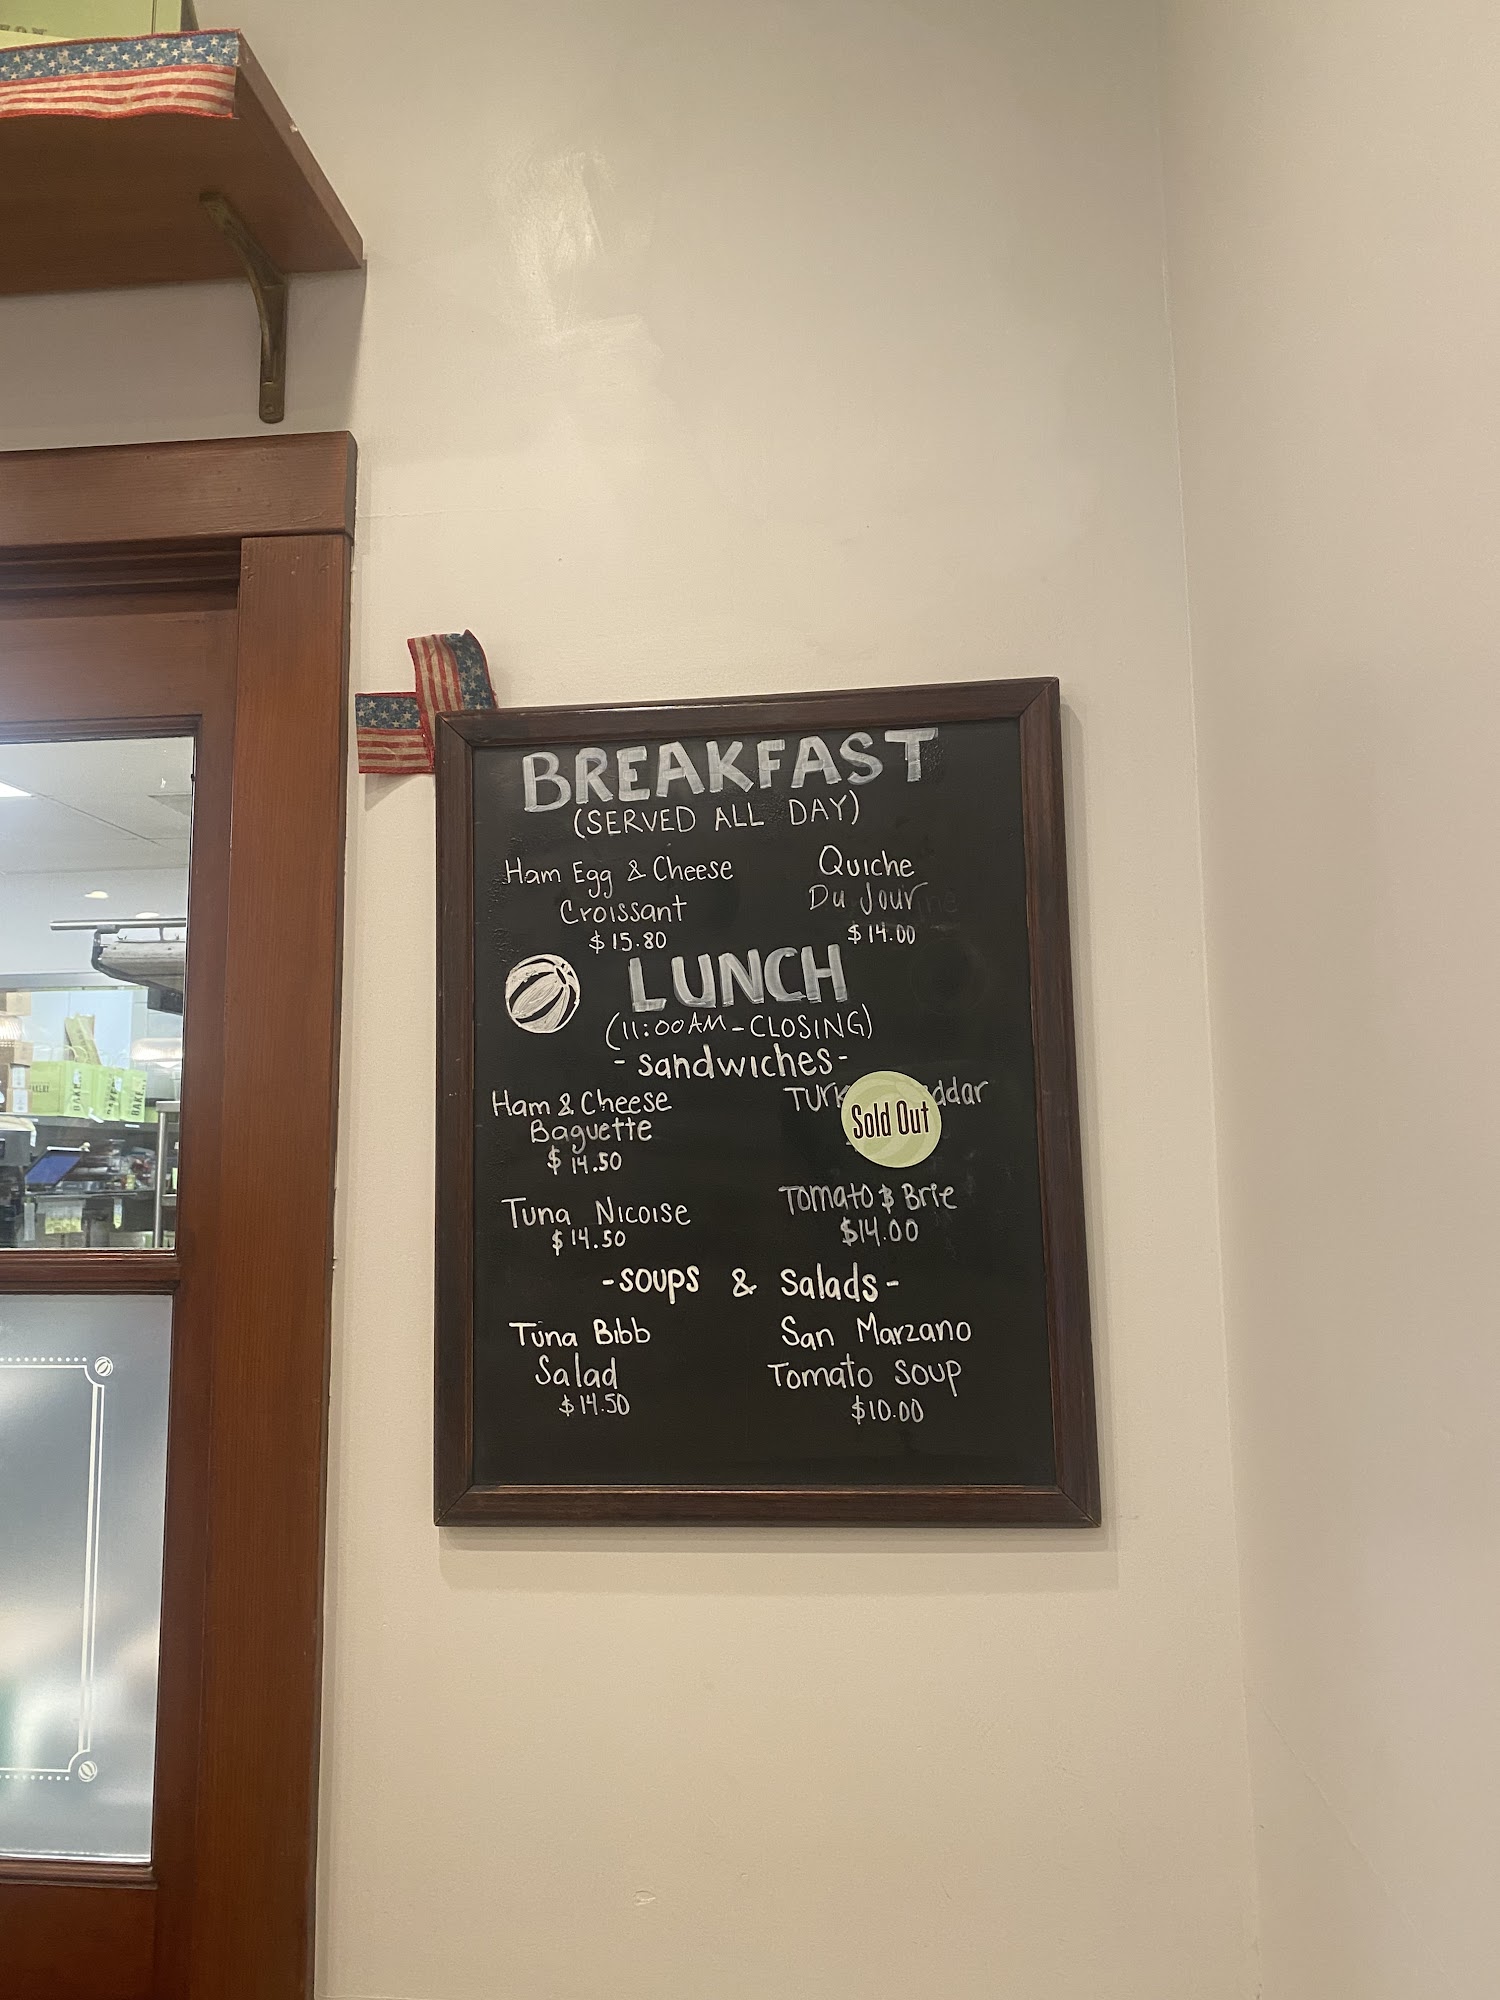 BREAKFAST
(SERVED ALL DAY)
Ham Egg & Cheese
Croissant
$15.80
Quiche
Du Jour
$14.00
LUNCH
(11:00AM-CLOSING)
-sandwiches-
Ham & Cheese
Baguette
$14.50
Sold Out
Tuna Nicoise
$14.50
Tomato & Brie
$14.00
-soups & salads-
Tuna Bibb
Salad
$14.50
San Marzano
Tomato soup
$10.00